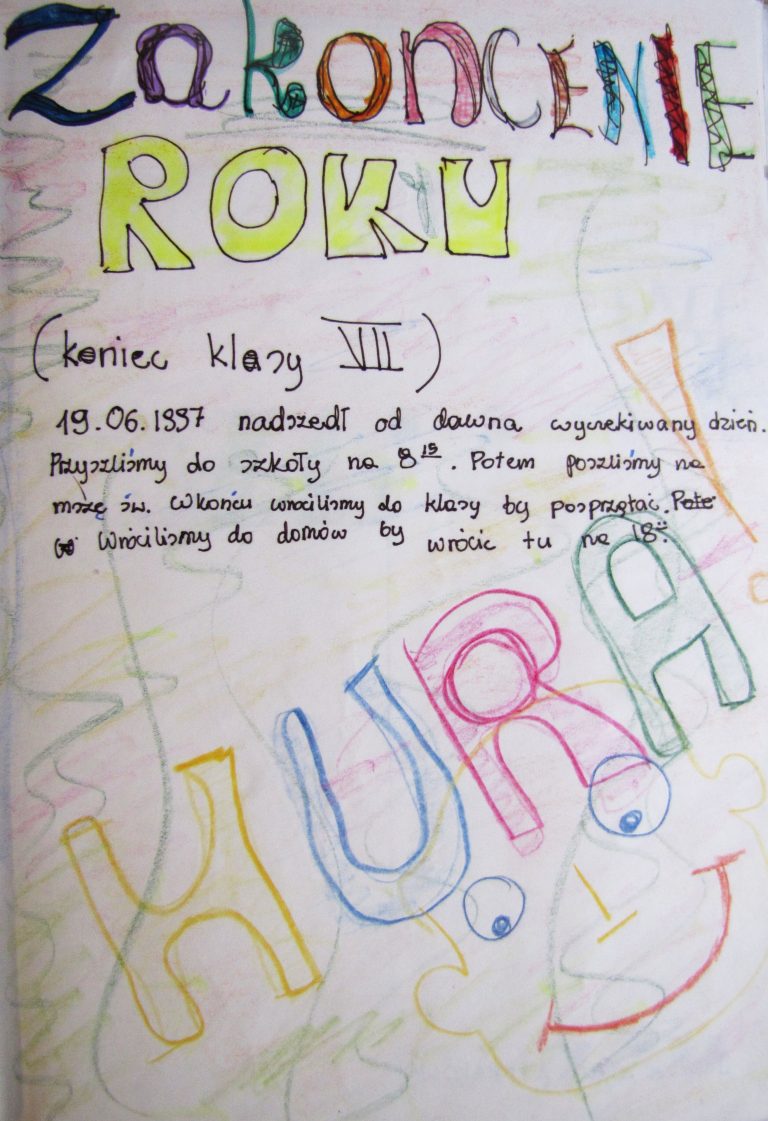 ZakonCENIE
ROKU
(koniec klasy VII)
19.06.1997 nadszedł od dawna wyczekiwany dzień.
Przyszliśmy do szkoły na 8 15. Potem poszliśmy na
mszę św. Wkońcu wrociliśmy do klasy by posprzątać. Pote
Wróciliśmy do domów by wrócic tu na 18
HURA!